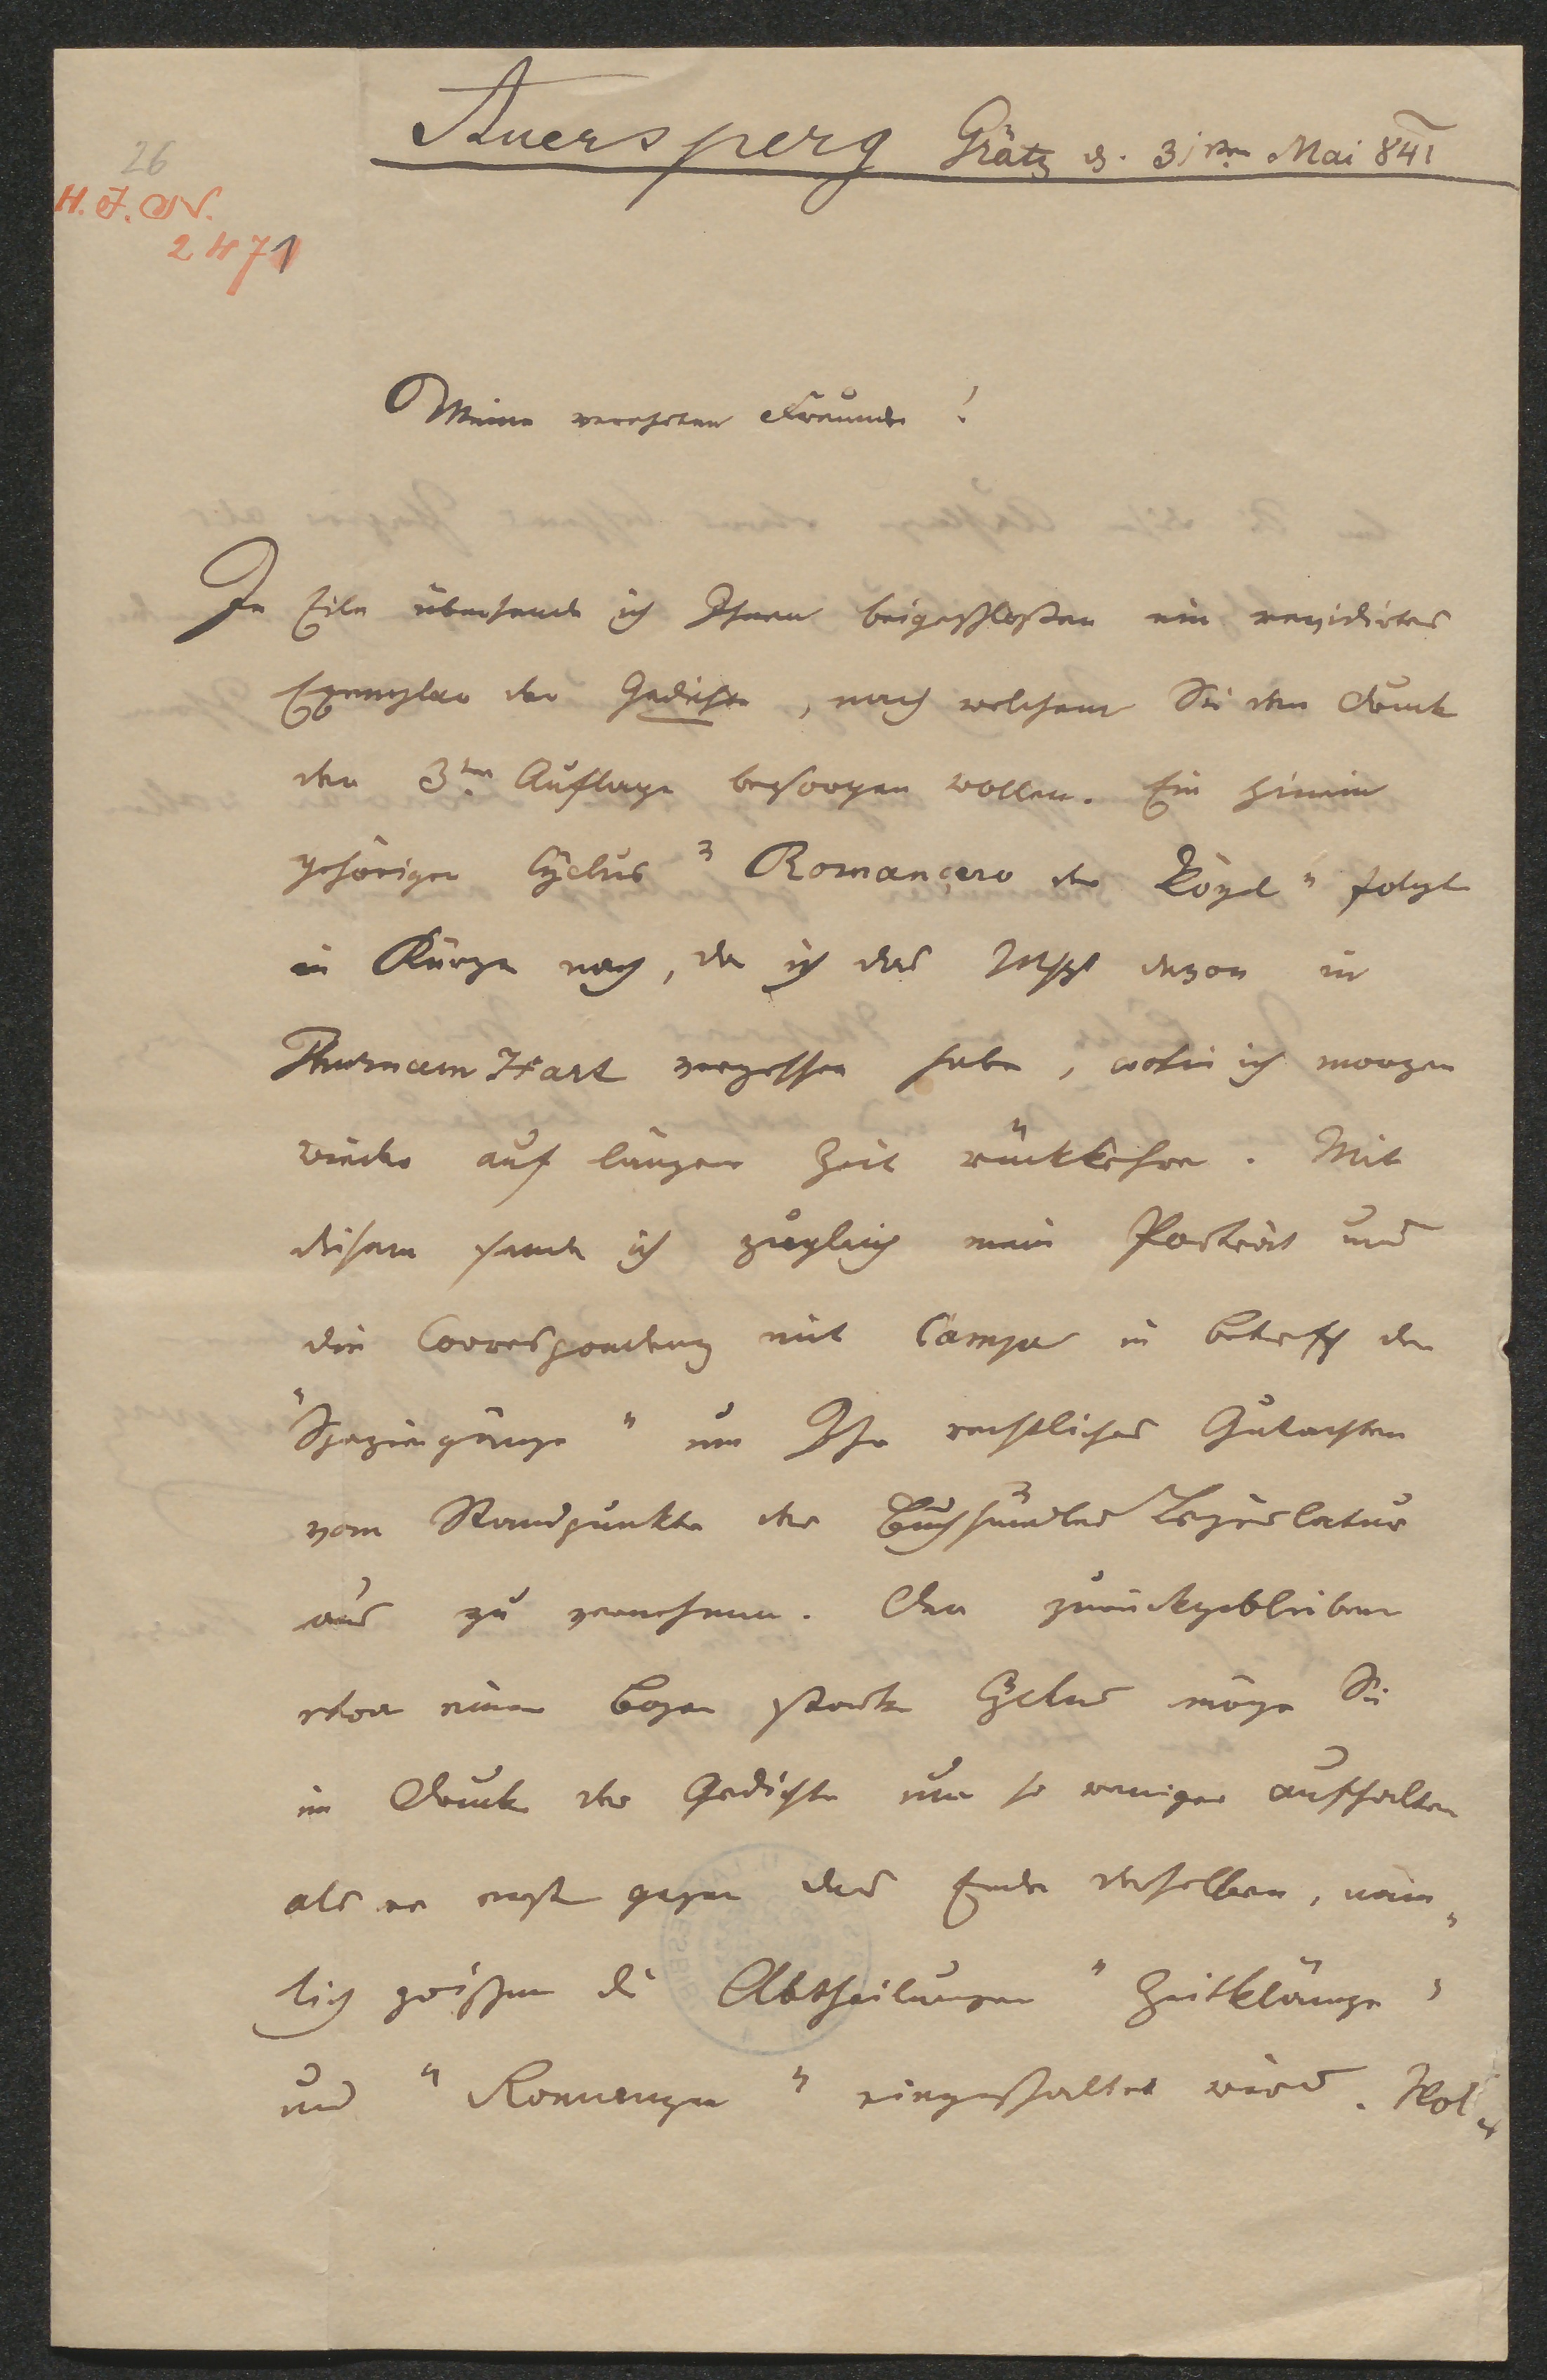 Auersperg Grätz d. 31ten Mai 841
26
H. I. N.
2471
Meine verehrten Freunde!
In Eile übersende ich Ihnen beigeschloßen ein revidirtes
Exemplar der Gedichte, nach welchem Sie den Druck
der 3ten Auflage besorgen wollen. Ein hinein
gehöriger Cyclus "Romançero der Vögel" folgt
in Kürze nach, da ich das Mspt davon in
Thurn am Hart vergessen habe, wohin ich morgen
wieder auf längere Zeit rückkehre. Mit
diesem sende ich zugleich mein Porträt und
die Correspondenz mit Campe in Betreff der
"Spaziergänge" um Ihr rechtliches Gutachten
vom Standpunkte der Buchhändler Legislatur
aus zu vernehmen. Der zurückgebliebene
etwa einen Bogen starke Cyclus möge Sie
im Drucke der Gedichte um so weniger aufhalten
als er erst gegen das Ende derselben, näm„
lich zwischen die Abtheilungen "Zeitklänge"
und "Romanzen" eingeschaltet wird.